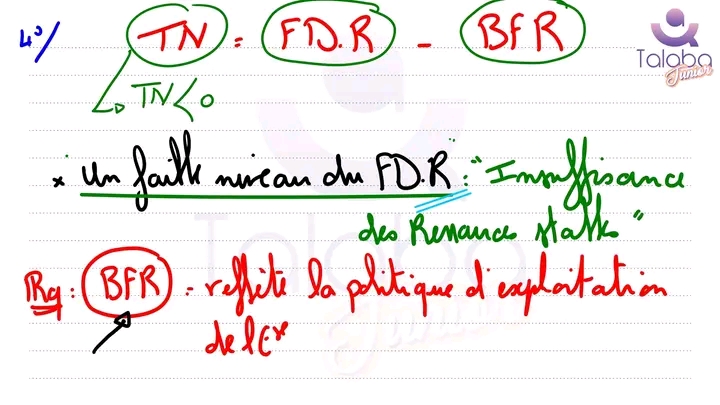 4°/ TN = FD.R - BFR
Talaba
Junior
TN < 0
x Un faible niveau du FD.R : "Insuffisance
des Ressources stables"
Talaba
Rq : BFR = reflète la politique d'exploitation
Junior
de l'Ese